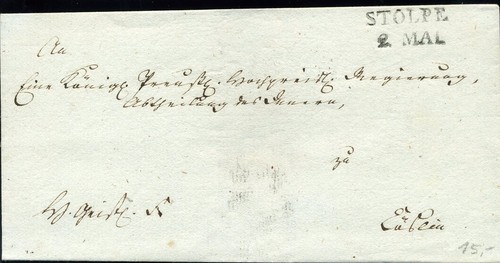 STOLPE
2 MAI
An
Eine Königl. Preußl. Hochpreißl. Regierung,
Abtheilung des Innern,
zu
Cöslin
15,-